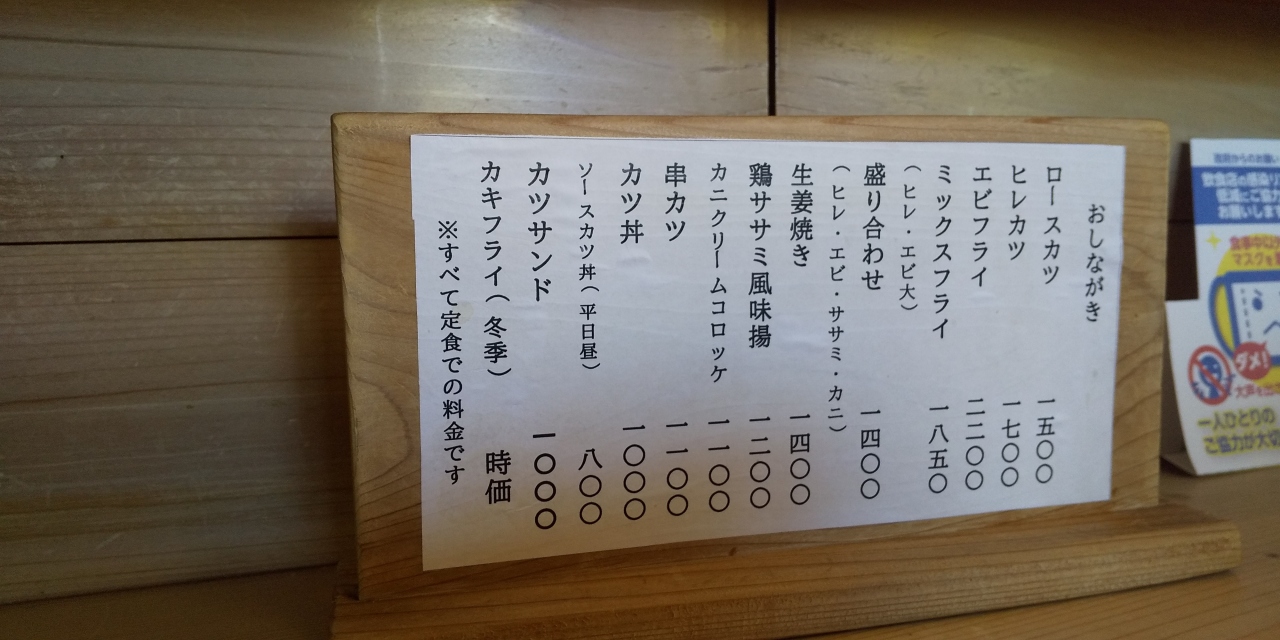 おしながき
ロースカツ 一五〇〇
ヒレカツ 一七〇〇
エビフライ 二二〇〇
ミックスフライ 一八五〇
（ヒレ・エビ大）
盛り合わせ 一四〇〇
（ヒレ・エビ・ササミ・カニ）
生姜焼き 一四〇〇
鶏ササミ風味揚 一二〇〇
カニクリームコロッケ 一一〇〇
串カツ 一一〇〇
カツ丼 一〇〇〇
ソースカツ丼（平日昼） 八〇〇
カツサンド 一〇〇〇
カキフライ（冬季） 時価
※すべて定食での料金です
飲食店の感染リ
低減にご協力
お願いしま
マスクを
ダメ!
一人ひとりの
ご協力が大切